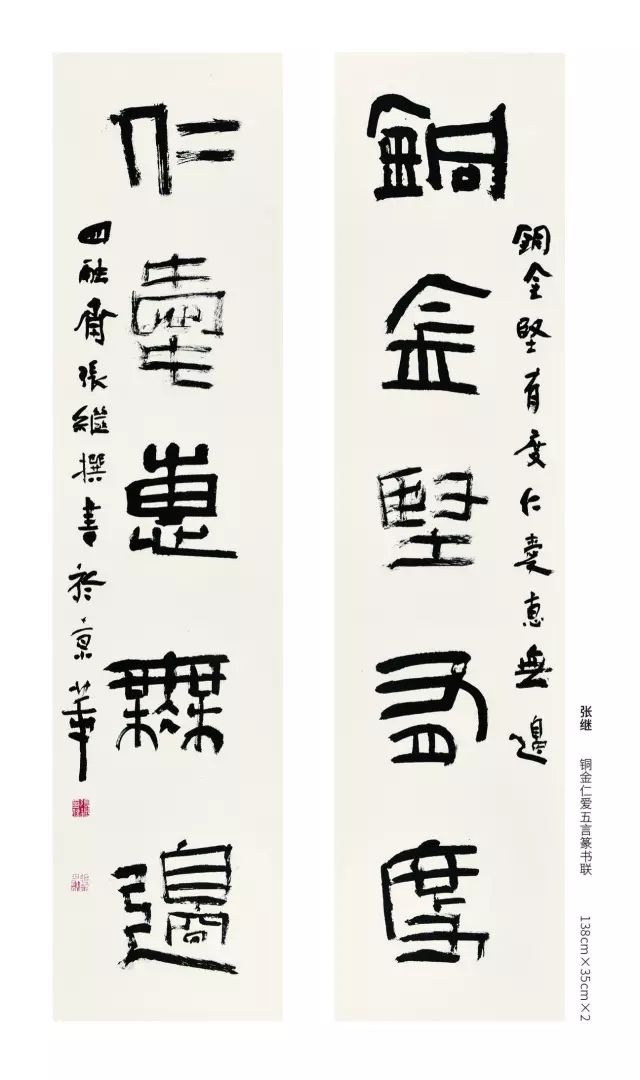 銅金堅有度仁愛惠無邊
銅金堅有度
仁愛惠無邊
四融齋張繼撰書於京華
张继 铜金仁爱五言篆书联 138cm×35cm×2